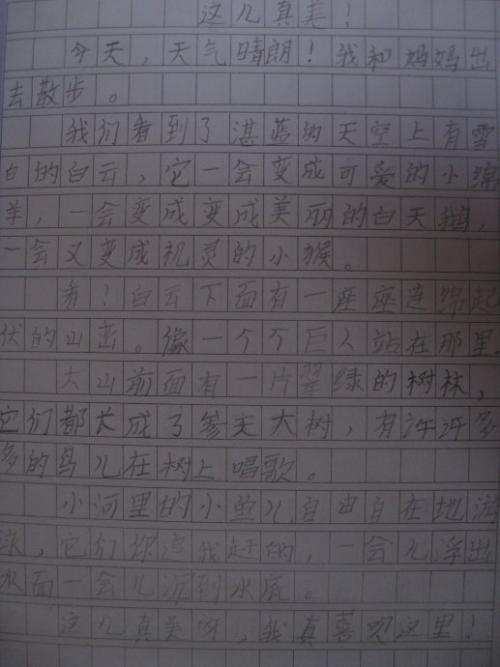 这儿真美！
今天，天气晴朗！我和妈妈出
去散步。
我们看到了湛蓝的天空上有雪
白的白云，它一会变成可爱的小绵
羊，一会变成变成美丽的白天鹅，
一会又变成机灵的小猴。
看！白云下面有一座座连绵起
伏的山峦。像一个个巨人站在那里。
大山前面有一片翠绿的树林，
它们都长成了参天大树，有许许多
多的鸟儿在树上唱歌。
小河里的小鱼儿自由自在地游
泳，它们你追我赶的，一会儿浮出
水面一会儿沉到水底。
这儿真美呀，我真喜欢这里！